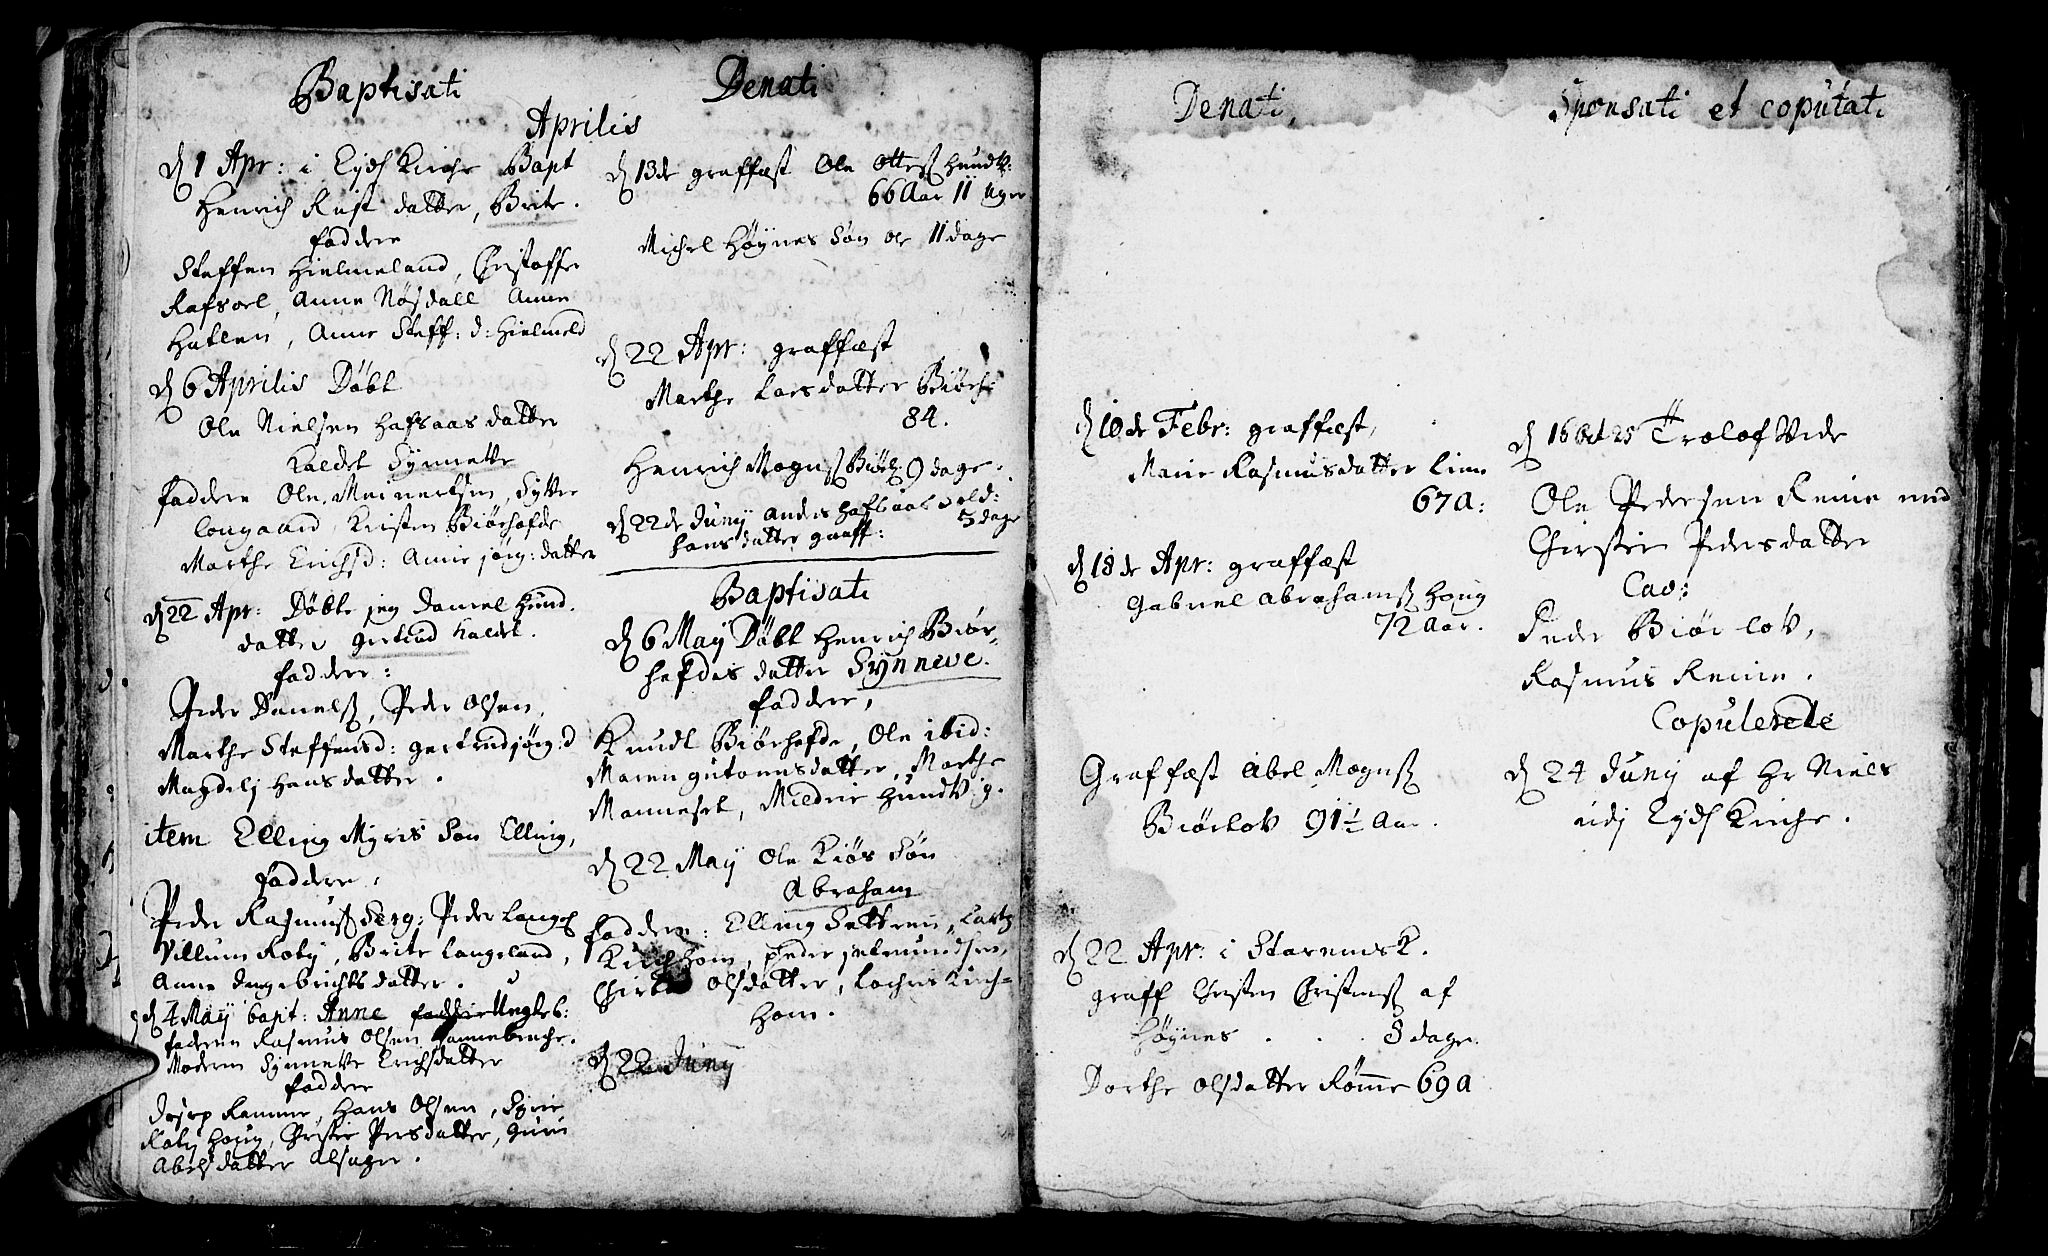 Baptisati
Aprilis
d 1 Apr: i Eyds Kirche Bapt
Henrich Rust datter, Brite.
faddere
Steffen Hielmeland, Christoffer
Rafsoel, Anne Nøsdall Anne
Hatlen, Anne Steff: d: Hielmeld
d 6 Aprilis Døbt
Ole Nielsen Hafsaas datter
kaldet Synnette
faddere Ole Meinertsen, Sytter
Longaard, Kristen Biørhofde
Marthe Erichsd: Anne jørg: datter
d 22 Apr: Døbte jeg Daniel Hund.
datter Gertrud kaldet.
faddere:
Peder Danielsz, Peder Olsen,
Marthe Steffensd: Gertrud jørg: d
Magdelj Hansdatter.
item Elling Myris Søn Elling,
faddere,
Peder Rasmusz Berg: Peder Langes
Villum Roty, Brite Langeland,
Anne Ingebrichtsdatter.
d 4 May bapt: Anne faddere Ungb:
faderen Rasmus Olsen
Moderen Synnette Erichsdatter
faddere
Jesep Ramme, Hans Olsen,
Houg, Christie Persdatter, Guri
Abelsdatter Alsager.
Denati
d 13de graffæst Ole Ottesz Hundv:
66 Aar 11 Uger
Michel Høynes Søn Ole 11 dage
d 22 Apr: graffæst
Marthe Larsdatter Biørh:
84.
Henrich Mognsz Biørl: 9 dage.
d 22de Juny Anders Hafsaas old:
5 dage
Hans datter graff:
Baptisati
d 6 May Døbt Henrich Biør-
hefdes datter Synneve.
faddere,
Knudt Biørhefde, Ole ibid:
Maren Gutormsdatter, Marthe
Manneset, Mildrie Hundvig.
d 22 May Ole Kiøs Søn
Abraham
faddere: Elling Sættren, Lartz
Kirchhom, Peder
Olsdatter, Kirch-
hom.
d 22 Juny
Denati,
d 10de Febr: graffæst,
Marie Rasmusdatter Linn
67 a:
d 18de Apr: graffæst
Gabriel Abrahamsz Houg
72 Aar.
Graffæst Abel Mognsz
Biørlov 91½ Aar.
d 22 Apr: i Starumsk.
graff Christen Christensz af
Høynes . . . 8 dage.
Dorthe Olsdatter Rømme 69 a
Sponsati et coputati
d 16 Oct 25 Trolofvede
Ole Pedersen Reine med
Christie Pedersdatter
Cav:
Peder Biørlov,
Rasmus Reine.
Copulerede
d 24 Juny af Hr Niels
udj Eyds Kirche.